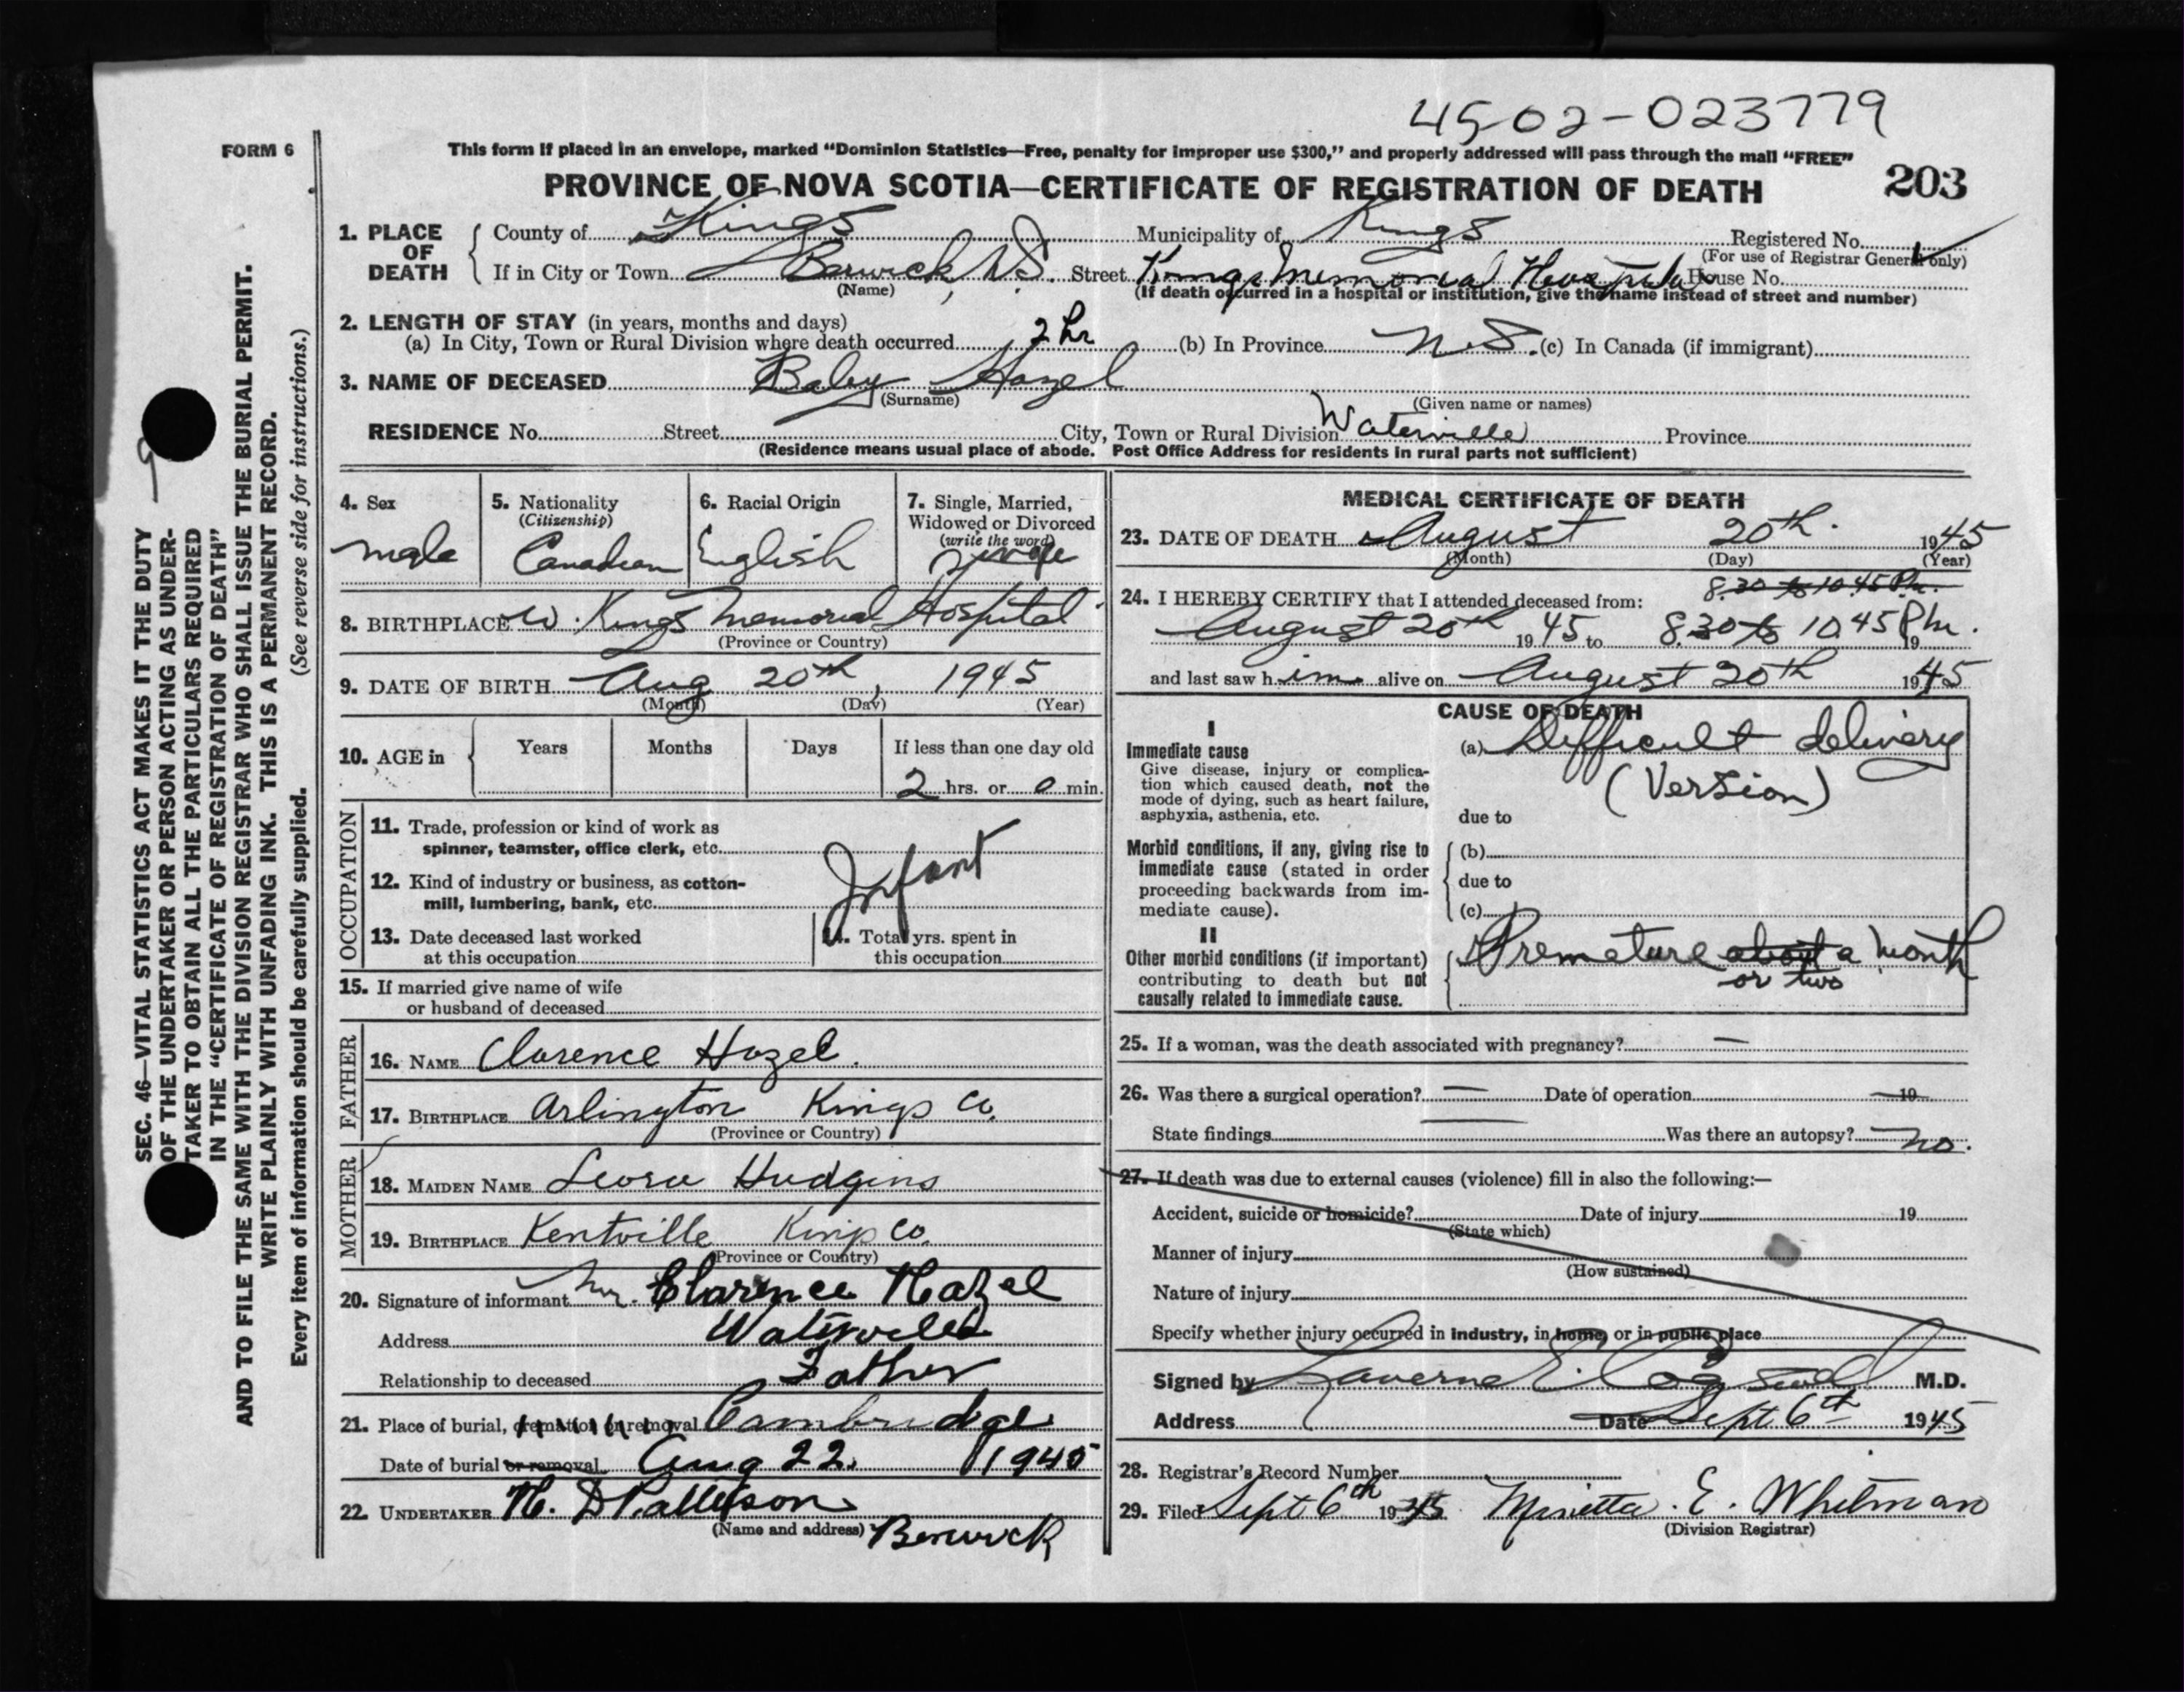 45-02-023779
FORM 6
This form if placed in an envelope, marked "Dominion Statistics—Free, penalty for improper use $300," and properly addressed will pass through the mail "FREE"
PROVINCE OF NOVA SCOTIA—CERTIFICATE OF REGISTRATION OF DEATH 203
1. PLACE OF DEATH { County of Kings Municipality of Kings Registered No.
(For use of Registrar General only)
If in City or Town Berwick, N.S. Street Kings Memorial Hospital House No.
(Name) (If death occurred in a hospital or institution, give the name instead of street and number)
2. LENGTH OF STAY (in years, months and days)
(a) In City, Town or Rural Division where death occurred 2 hr (b) In Province N.S. (c) In Canada (if immigrant)
3. NAME OF DECEASED Baby Hazel
(Surname) (Given name or names)
RESIDENCE No. Street City, Town or Rural Division Waterville Province
(Residence means usual place of abode. Post Office Address for residents in rural parts not sufficient)
4. Sex
male
5. Nationality
(Citizenship)
Canadian
6. Racial Origin
English
7. Single, Married,
Widowed or Divorced
(write the word)
single
8. BIRTHPLACE W. Kings Memorial Hospital
(Province or Country)
9. DATE OF BIRTH Aug 20th, 1945
(Month) (Day) (Year)
10. AGE in { Years Months Days If less than one day old
2 hrs. or 0 min.
OCCUPATION
11. Trade, profession or kind of work as
spinner, teamster, office clerk, etc.
Infant
12. Kind of industry or business, as cotton-
mill, lumbering, bank, etc.
13. Date deceased last worked
at this occupation
14. Total yrs. spent in
this occupation
15. If married give name of wife
or husband of deceased
FATHER
16. NAME Clarence Hazel.
17. BIRTHPLACE Arlington Kings Co.
(Province or Country)
MOTHER
18. MAIDEN NAME Leora Hudgins
19. BIRTHPLACE Kentville Kings Co.
(Province or Country)
20. Signature of informant Mr. Clarence Hazel
Address Waterville
Relationship to deceased Father
21. Place of burial, cremation or removal Cambridge
Date of burial or removal Aug 22. 1945
22. UNDERTAKER
(Name and address) Berwick
MEDICAL CERTIFICATE OF DEATH
23. DATE OF DEATH August 20th. 1945
(Month) (Day) (Year)
8.30 to 10.45 P.m.
24. I HEREBY CERTIFY that I attended deceased from:
August 20th 1945 to 8.30 to 10.45 P.m. 19
and last saw him alive on August 20th 1945
CAUSE OF DEATH
I
Immediate cause
Give disease, injury or complica-
tion which caused death, not the
mode of dying, such as heart failure,
asphyxia, asthenia, etc.
(a) Difficult delivery
(Version)
due to
Morbid conditions, if any, giving rise to
immediate cause (stated in order
proceeding backwards from im-
mediate cause).
(b)
due to
(c)
II
Other morbid conditions (if important)
contributing to death but not
causally related to immediate cause.
Premature about a month
or two
25. If a woman, was the death associated with pregnancy? —
26. Was there a surgical operation? — Date of operation 19
State findings Was there an autopsy? no.
27. If death was due to external causes (violence) fill in also the following:—
Accident, suicide or homicide? Date of injury 19
(State which)
Manner of injury
(How sustained)
Nature of injury
Specify whether injury occurred in industry, in home, or in public place
Signed by Laverne E. Cogswell M.D.
Address Date Sept 6th 1945
28. Registrar's Record Number
29. Filed Sept 6th 1945 Minetta. E. Whitman
(Division Registrar)
SEC. 46—VITAL STATISTICS ACT MAKES IT THE DUTY
OF THE UNDERTAKER OR PERSON ACTING AS UNDER-
TAKER TO OBTAIN ALL THE PARTICULARS REQUIRED
IN THE "CERTIFICATE OF REGISTRATION OF DEATH"
AND TO FILE THE SAME WITH THE DIVISION REGISTRAR WHO SHALL ISSUE THE BURIAL PERMIT.
WRITE PLAINLY WITH UNFADING INK. THIS IS A PERMANENT RECORD.
Every item of information should be carefully supplied. (See reverse side for instructions.)